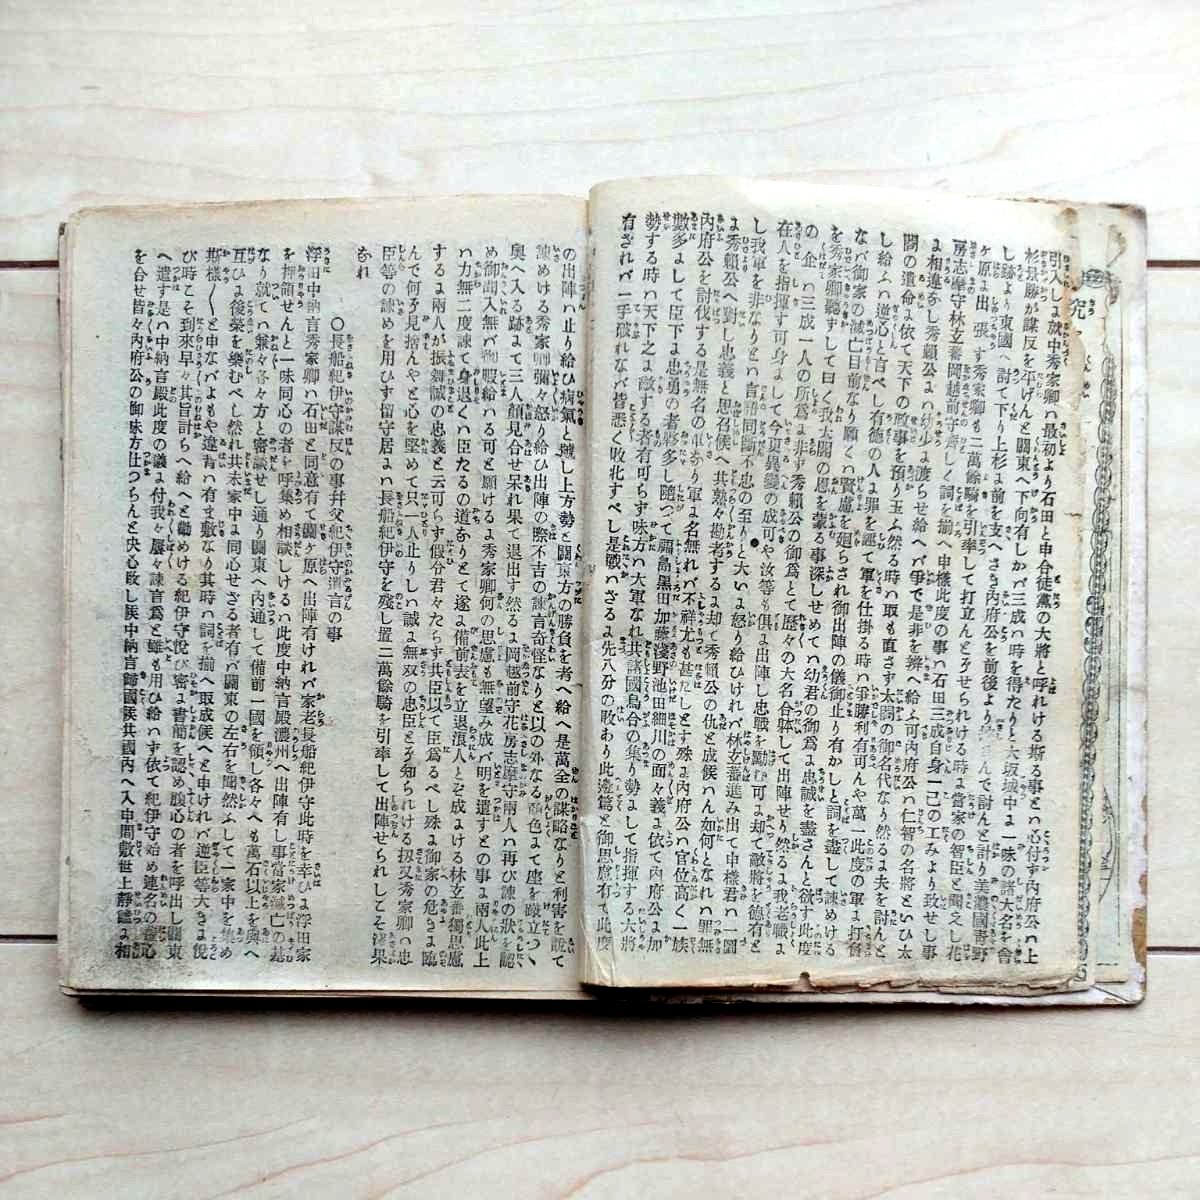 引入しよ就中秀家卿ハ最初より石田と申合徒黨の大將と呼れける斯る事とハ心付ず內府公ハ上
杉景勝が謀反を平げんと關東へ下向有しかバ三成ハ時を得たりと大坂城中よ一味の諸大名を會
し跡より東國へ討て下り上杉よ前を支へさき內府公を前後より んで討んと計り美濃國靑野
ケ原よ出張す秀家卿も二萬餘騎を引率して打立んとぞせられける時よ當家の智臣と聞えし花
房志摩守林玄蕃岡越前守齊しく詞を揃へ申樣此度の事ハ石田三成自身一己の工みより致せし事
よ相違なし秀賴公よハ幼少よ渡らせ給へバ爭で是非を辨へ給ふ可內府公ハ仁智の名將といひ太
閤の遺命よ依て天下の政事を預り玉ふ然る時ハ取も直さず太閤の御名代なり然るよ夫を討んと
し給ふハ逆心と言べし有他の人よ罪を誣て軍を仕掛る時ハ爭勝利有可んや萬一此度の軍よ打負
なバ御家の滅亡目前なり願くハ賢慮を廻らされ御出陣の儀御止り有かしと詞を盡して諫める
を秀家卿聽すして曰く我太閤の恩を蒙る事深しせめてハ幼君の御爲よ忠誠を盡さんと欲す此度
の企ハ三成一人の所爲よ非ず秀賴公の御爲とて歷々の大名合躰して出陣せり然るよ我老職よ
在人を指揮す可身よして今更異變の成可や汝等も俱よ出陣し忠戰を勵む可よ却て敵將を德有と
し我軍を非なりとハ言語同斷不忠の至りと大いよ怒り給ひけれバ林玄蕃進み出て申樣君ハ一圖
よ秀賴公へ對し忠義と思召候へ共熟々勘考するよ却て秀賴公の仇と成候ハん如何となれバ罪無
內府公を討伐する是無名の軍なり軍よ名無れバ不祥尤も甚だしとす殊よ內府公ハ官位高く一族
數多よして臣下よ忠勇の者夥多し隨つて福島黑田加藤淺野池田細川の面々義よ依て內府公よ加
勢する時ハ天下之よ敵する者有可らず味方ハ大軍なれ共諸國烏合の集り勢よして指揮する大將
有ざれバ一手破れなバ皆悉く敗北すべし是戰ハざるよ先八分の敗あり此邊篤と御思慮有て此度
の出陣ハ止り給ひ病氣と號し上方勢と關東方の勝負を考へ給へ是萬全の謀略なりと利害を說て
諫めける秀家卿彌々怒り給ひ出陣の際不吉の諫言奇怪なりと以の外なる顏色よて座を蹴立つゝ
奧へ入る跡よて三人顏見合せ呆れ果て退出す然るよ岡越前守花房志摩守兩人ハ再び諫の狀を認
め御聞入無バ御暇給ハる可と願けるよ秀家卿何の思慮も無望み成バ明を遣すとの事よ兩人此上
ハ力無二度諫て身退くハ臣たるの道なりとて遂よ備前表を立退浪人とぞ成よける林玄蕃獨思慮
するよ兩人が振舞誠の忠義と云可らず假令君々たらず共臣以て臣爲るべし殊よ御家の危きよ臨
んで何ぞ見捨んやと心を堅めて只一人止りしハ誠よ無双の忠臣とぞ知られける扨又秀家卿ハ忠
臣等の諫めを用ひず留守居よハ長船紀伊守を殘し置二萬餘騎を引率して出陣せられしこそ淺果
なれ
○長船紀伊守謀反の事幷父紀伊守遺言の事
浮田中納言秀家卿ハ石田と同意有て關ケ原へ出陣有けれバ家老長船紀伊守此時を幸ひよ浮田家
を押領せんと一味同心の者を呼集め相談しけるハ此度中納言殿濃州へ出陣有し事當家滅亡の基
なり就てハ兼々各々方と密談せし通り關東へ內通して備前一國を領し各々へも萬石以上を與へ
互ひよ後榮を樂むべし然れ共未家中よ同心せざる者有バ關東の左右を聞然ふして一家中を集め
斯樣〱と申なバよもや違背ハ有ま敷なり其時ハ詞を揃へ取成候へと申けれバ逆臣等大きよ悅
び時こそ到來早々其旨計らへ給へと勸める紀伊守悅び密よ書簡を認め腹心の者を呼出し關東
へ遣す是ハ中納言殿此度の議よ付我々屢々諫言爲と雖も用ひ給ハず依て紀伊守始め連名の 心
を合せ皆々內府公の御味方仕つらんと决心致し候中納言歸國候共國內へ入申間敷世上靜謐よ相